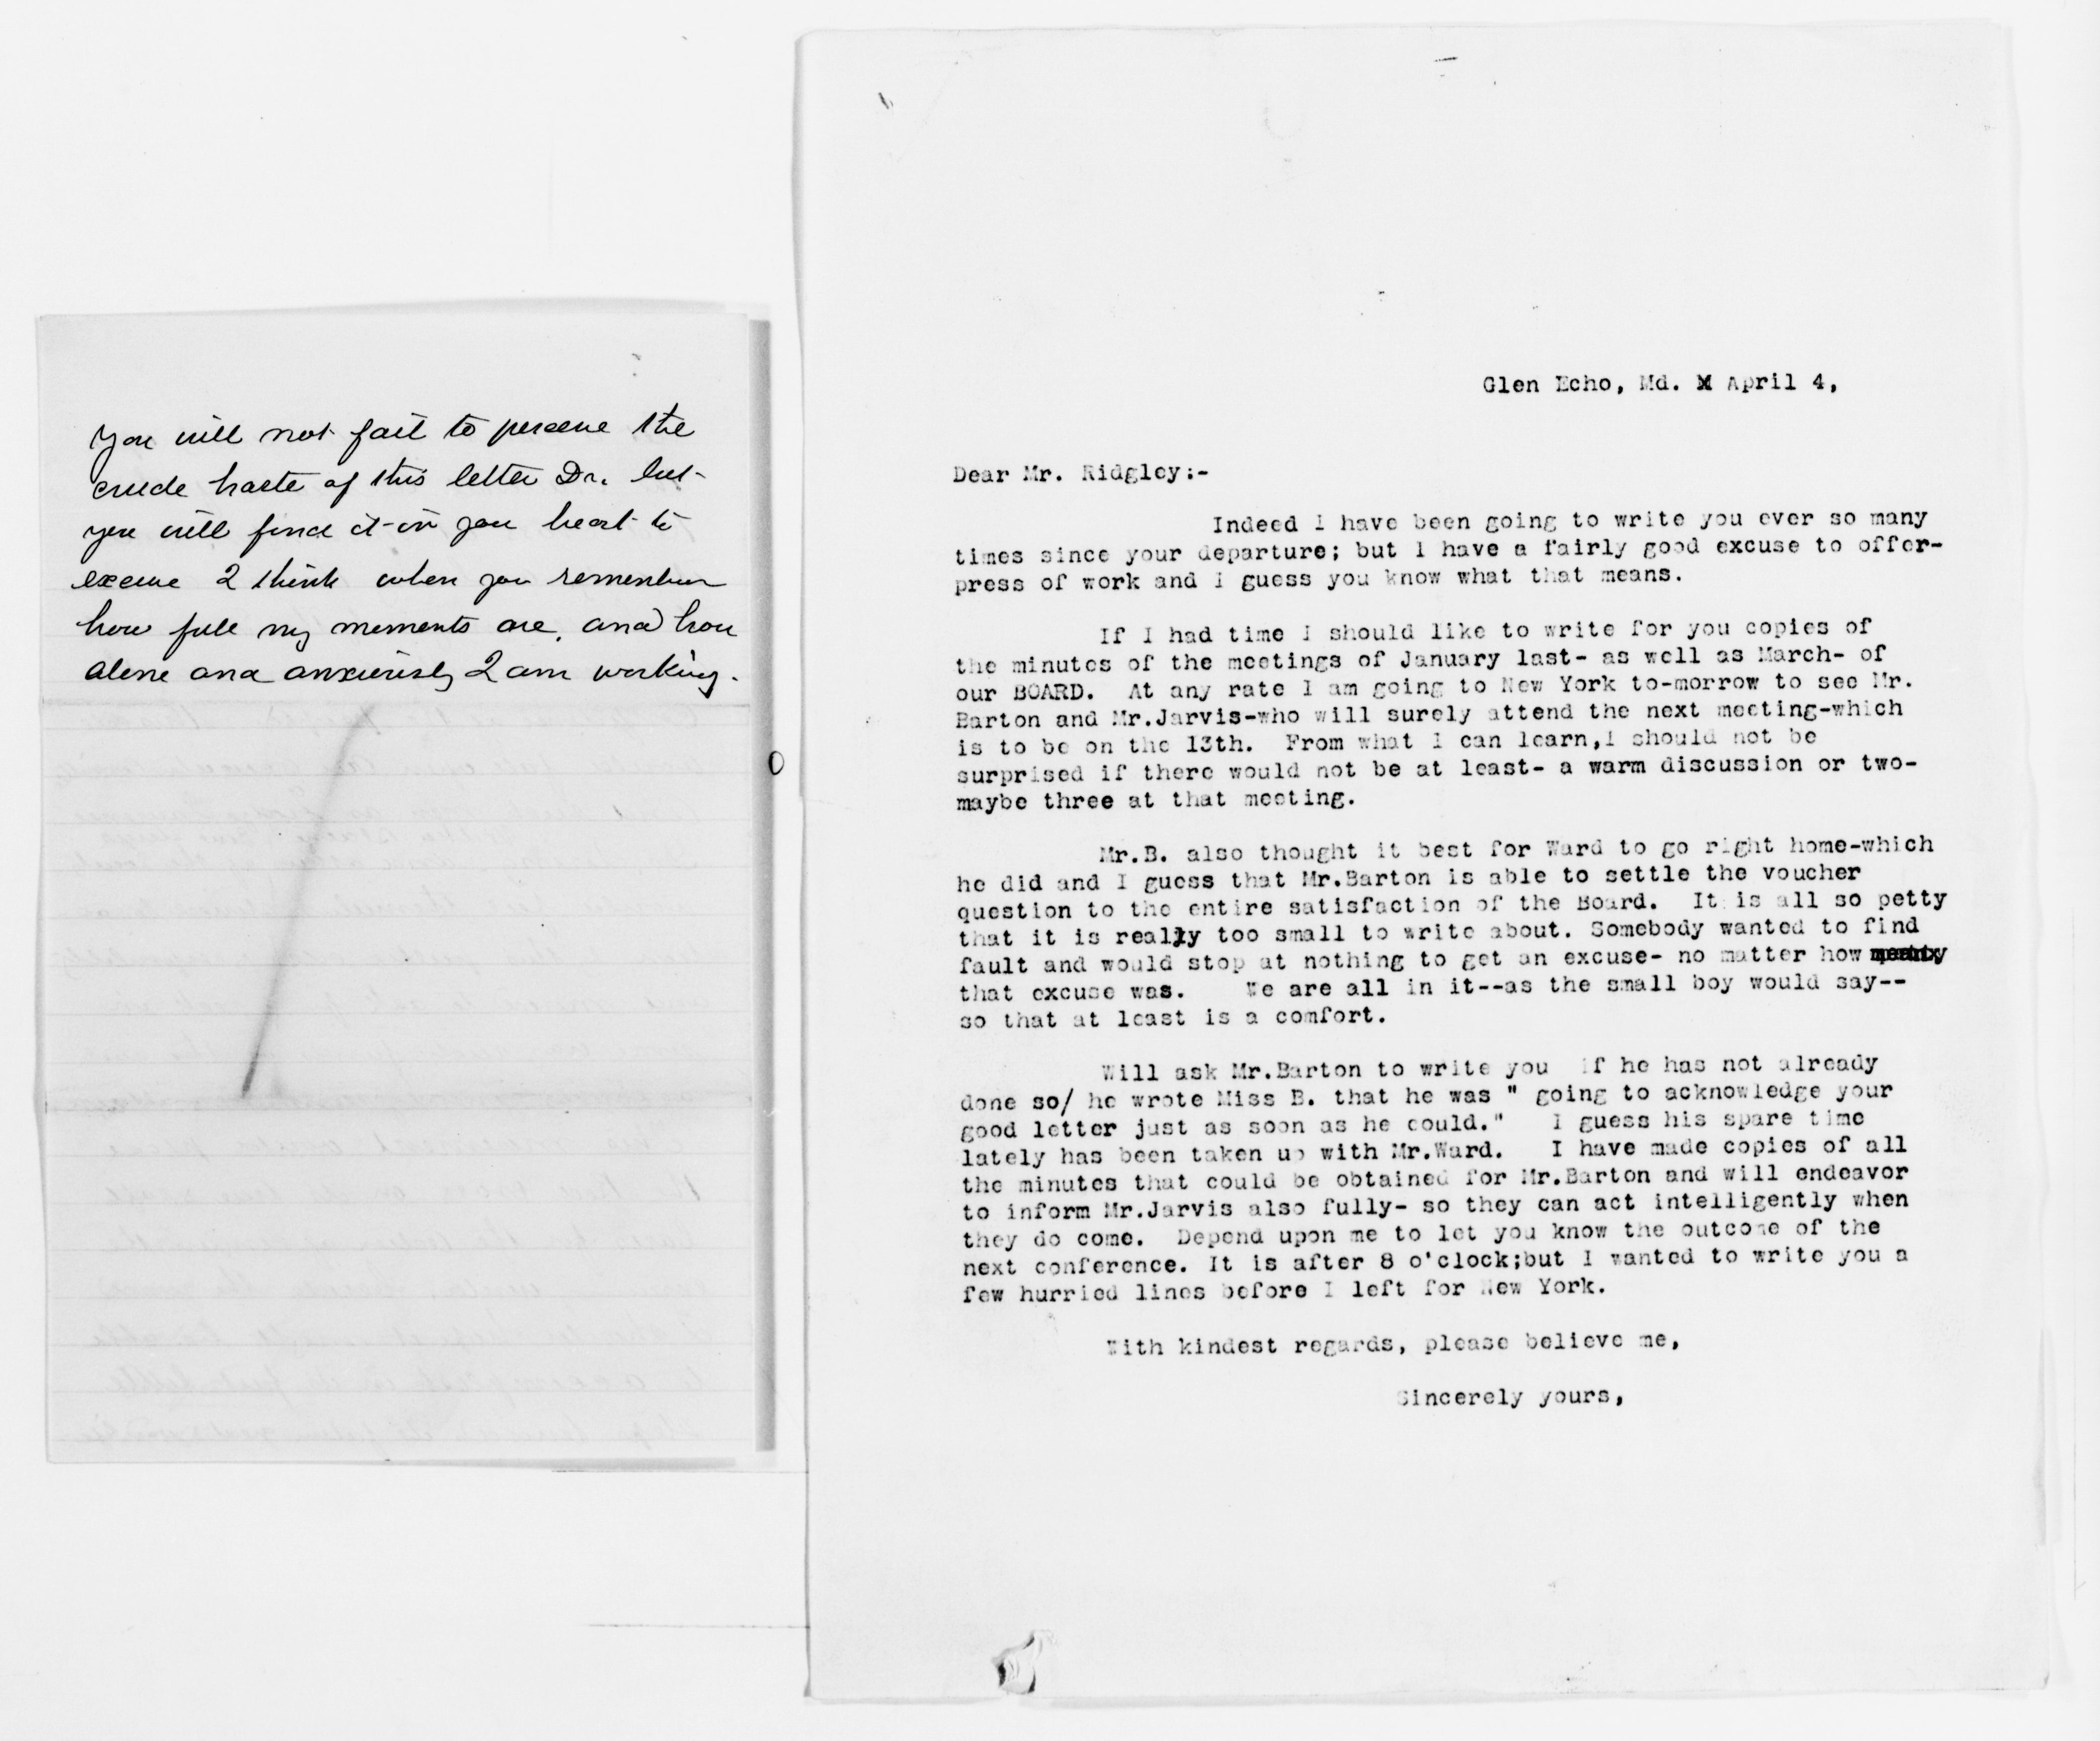 You will not fail to perceive the
crude haste of this letter Dr. but
you will find it in you heart to
excuse I think when you remember
how full my moments are, and how
alone and anxiously I am working.
Glen Echo, Md. X April 4,
Dear Mr. Ridgley:-
Indeed I have been going to write you ever so many
times since your departure; but I have a fairly good excuse to offer-
press of work and I guess you know what that means.
If I had time I should like to write for you copies of
the minutes of the meetings of January last- as well as March- of
our BOARD. At any rate I am going to New York to-morrow to see Mr.
Barton and Mr.Jarvis-who will surely attend the next meeting-which
is to be on the 13th. From what I can learn,I should not be
surprised if there would not be at least- a warm discussion or two-
maybe three at that meeting.
Mr.B. also thought it best for Ward to go right home-which
he did and I guess that Mr.Barton is able to settle the voucher
question to the entire satisfaction of the Board. It is all so petty
that it is really too small to write about. Somebody wanted to find
fault and would stop at nothing to get an excuse- no matter how
that excuse was. We are all in it--as the small boy would say--
so that at least is a comfort.
Will ask Mr.Barton to write you if he has not already
done so/ he wrote Miss B. that he was " going to acknowledge your
good letter just as soon as he could." I guess his spare time
lately has been taken up with Mr.Ward. I have made copies of all
the minutes that could be obtained for Mr.Barton and will endeavor
to inform Mr.Jarvis also fully- so they can act intelligently when
they do come. Depend upon me to let you know the outcome of the
next conference. It is after 8 o'clock;but I wanted to write you a
few hurried lines before I left for New York.
With kindest regards, please believe me,
Sincerely yours,